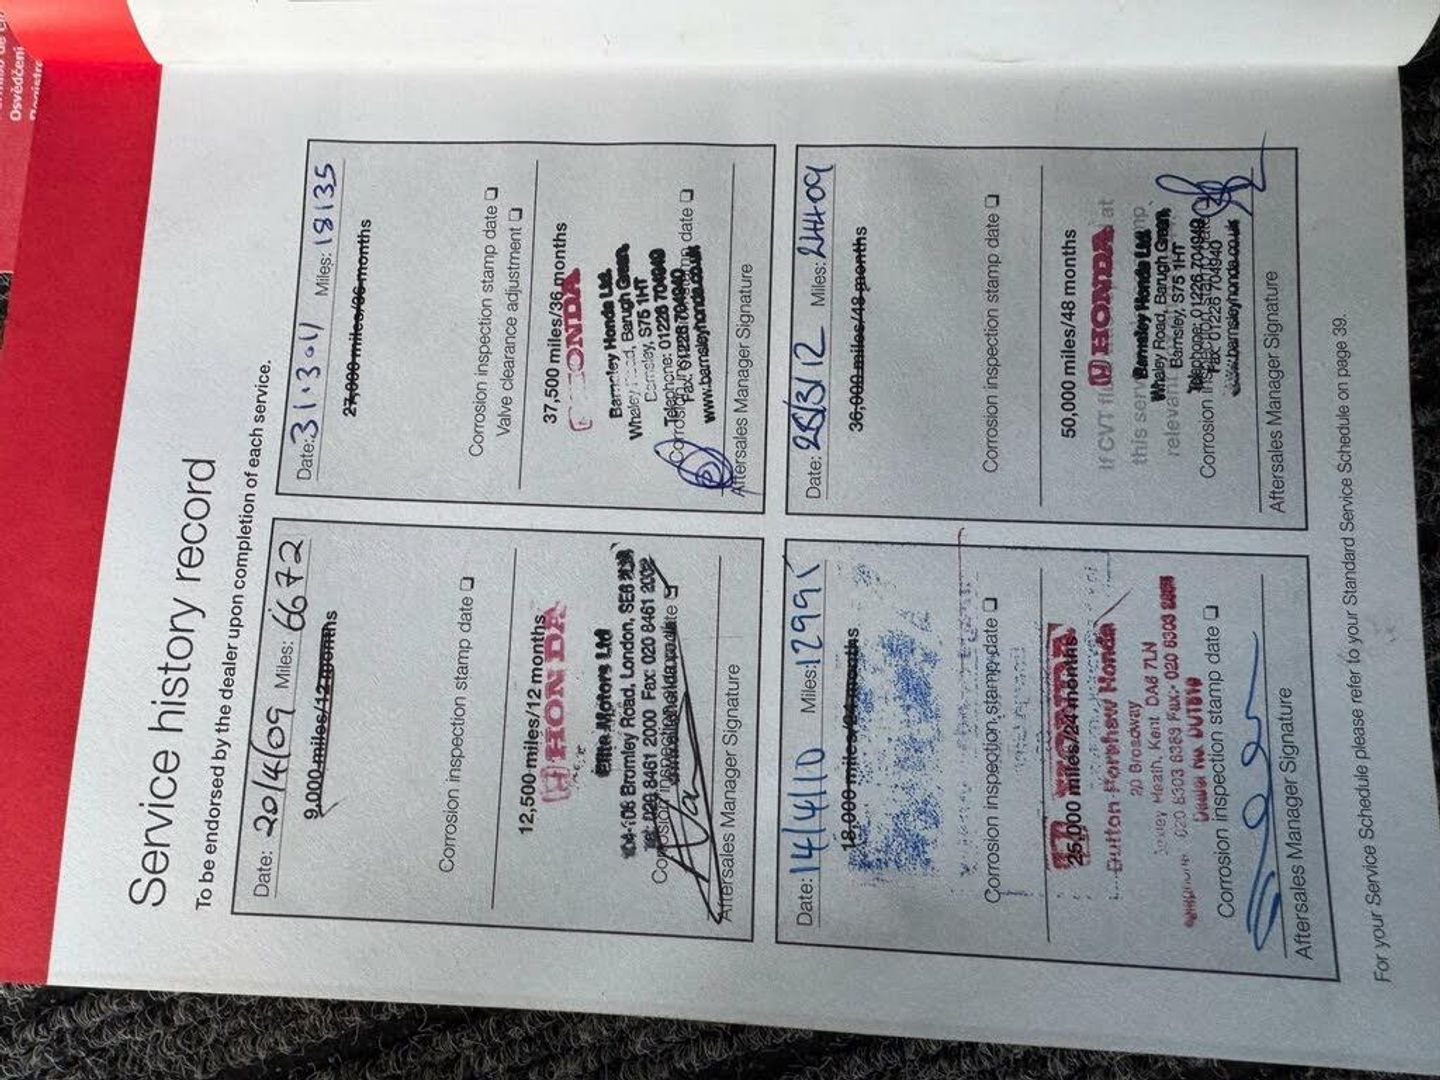 Osvědčení
Service history record
To be endorsed by the dealer upon completion of each service.
Date: 20/4/09 Miles: 6672
9,000 miles/12 months
Corrosion inspection stamp date
12,500 miles/12 months
HONDA
Elite Motors Ltd
104-106 Bromley Road, London, SE6
Tel: 020 8461 2000 Fax: 020 8461 2002
Corrosion inspection stamp date
Aftersales Manager Signature
Date: 31.3.011 Miles: 18135
27,000 miles/36 months
Corrosion inspection stamp date
Valve clearance adjustment
37,500 miles/36 months
HONDA
Barnsley Honda Ltd.
Whaley Road, Barugh Green,
Barnsley, S75 1HT
Telephone: 01226 704940
Fax: 01226 704940
Corrosion inspection stamp date
www.barnsleyhonda.co.uk
Aftersales Manager Signature
Date: 14/4/10 Miles: 12995
18,000 miles/24 months
Corrosion inspection stamp date
HONDA
25,000 miles/24 months
Honda
20 Broadway
Heath, Kent DA6 7LN
020 8303 Fax: 020 8303
Corrosion inspection stamp date
Aftersales Manager Signature
Date: 28/3/12 Miles: 24409
36,000 miles/48 months
Corrosion inspection stamp date
50,000 miles/48 months
If CVT at
HONDA
this
Barnsley Honda Ltd.
Whaley Road, Barugh Green,
Barnsley, S75 1HT
Telephone: 01226 704940
Fax: 01226 704940
Corrosion inspection stamp date
www.barnsleyhonda.co.uk
Aftersales Manager Signature
For your Service Schedule please refer to your Standard Service Schedule on page 39.